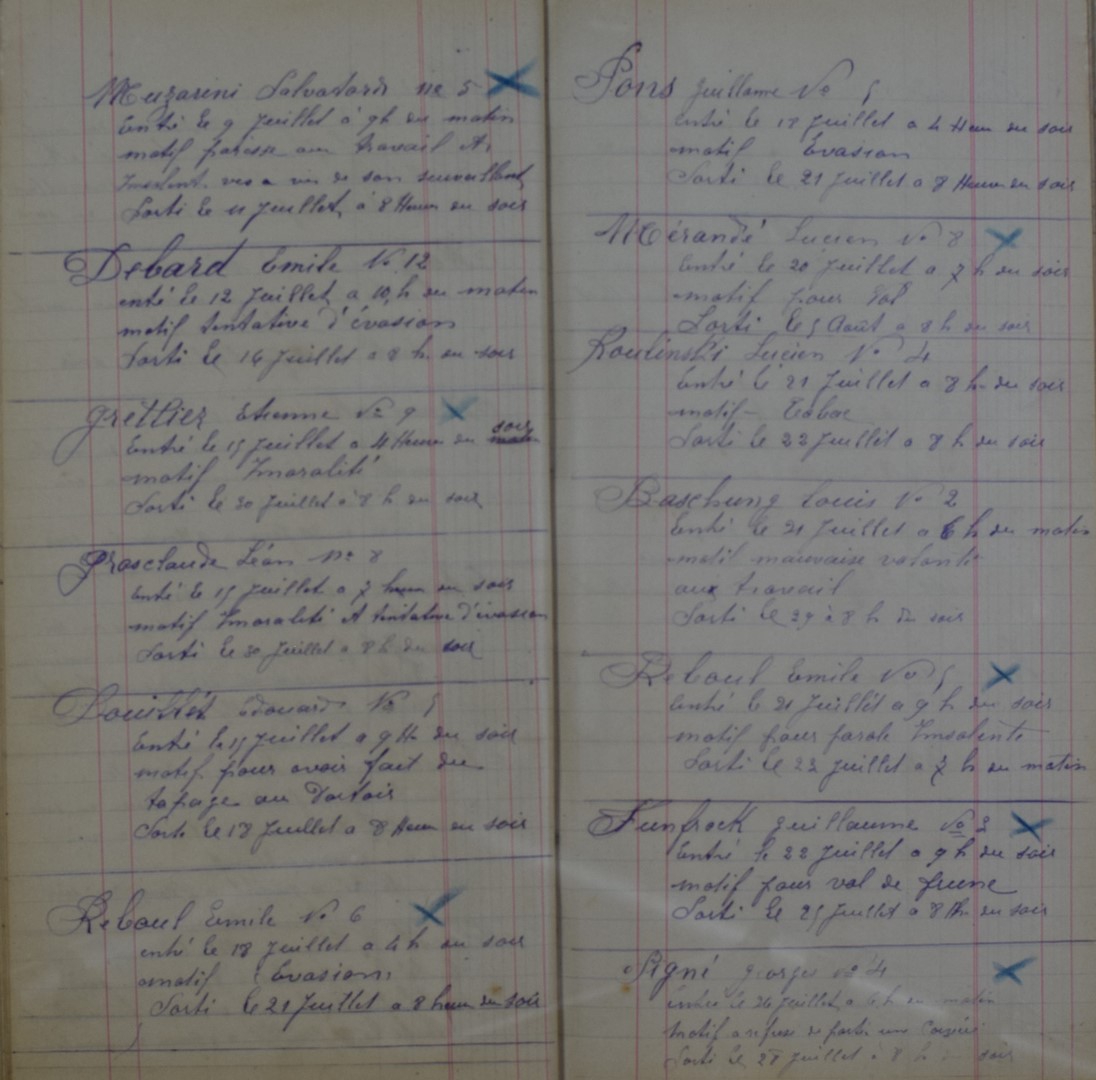 Muzareni Salvatoris No 5
Entré le 9 Juillet à 9h du matin
motif paresse au travail et
Insolent vis a vis de son surveillant
Sorti le 11 Juillet à 8 Heures du soir
Debard Emile No 12
entré le 12 Juillet a 10 h du matin
motif tentative d'évasion
Sorti le 16 Juillet a 8 h du soir
Grettier Etienne No 9
soir
Entré le 15 Juillet a 4 Heures du matin
motif Imoralité
Sorti le 30 Juillet à 8 h du soir
Grosclaude Léon No 8
Entré le 15 Juillet a 7 heures du soir
motif Imoralité et tentative d'évasion
Sorti le 30 Juillet a 8 h du soir
Edouard No 5
Entré le 15 Juillet a 9 H du soir
motif pour avoir fait du
tapage au Dortoir
Sorti le 18 Juillet a 8 Heures du soir
Reboul Emile No 6
entré le 18 Juillet a 4 h du soir
motif Evasion
Sorti le 21 Juillet a 8 heures du soir
Pons Guillaume No 5
Entré le 18 Juillet a 4 Heures du soir
motif Evasion
Sorti le 21 Juillet a 8 Heures du soir
Mérandé Lucien No 8
Entré le 20 Juillet a 7 h du soir
motif pour Vol
Sorti le 5 Août a 8 h du soir
Roulinski Lucien No 4
Entré le 21 Juillet a 8 h du soir
motif - Tabac
Sorti le 22 Juillet a 8 h du soir
Baschung Louis No 2
Entré le 21 Juillet a 6 h du matin
motif mauvaise volonté
aux travail
Sorti le 29 à 8 h du soir
Reboul Emile No 5
Entré le 21 Juillet a 9 h du soir
motif pour parole Insolente
Sorti le 22 Juillet a 7 h du matin
Funfrock Guillaume No 2
Entré le 22 Juillet a 9 h du soir
motif pour vol de prune
Sorti le 25 Juillet a 8 H du soir
Signé Georges No 4
Entré le 26 Juillet a 6 h du matin
motif a refusé de faire une Corvée
Sorti le 28 Juillet a 8 h du soir